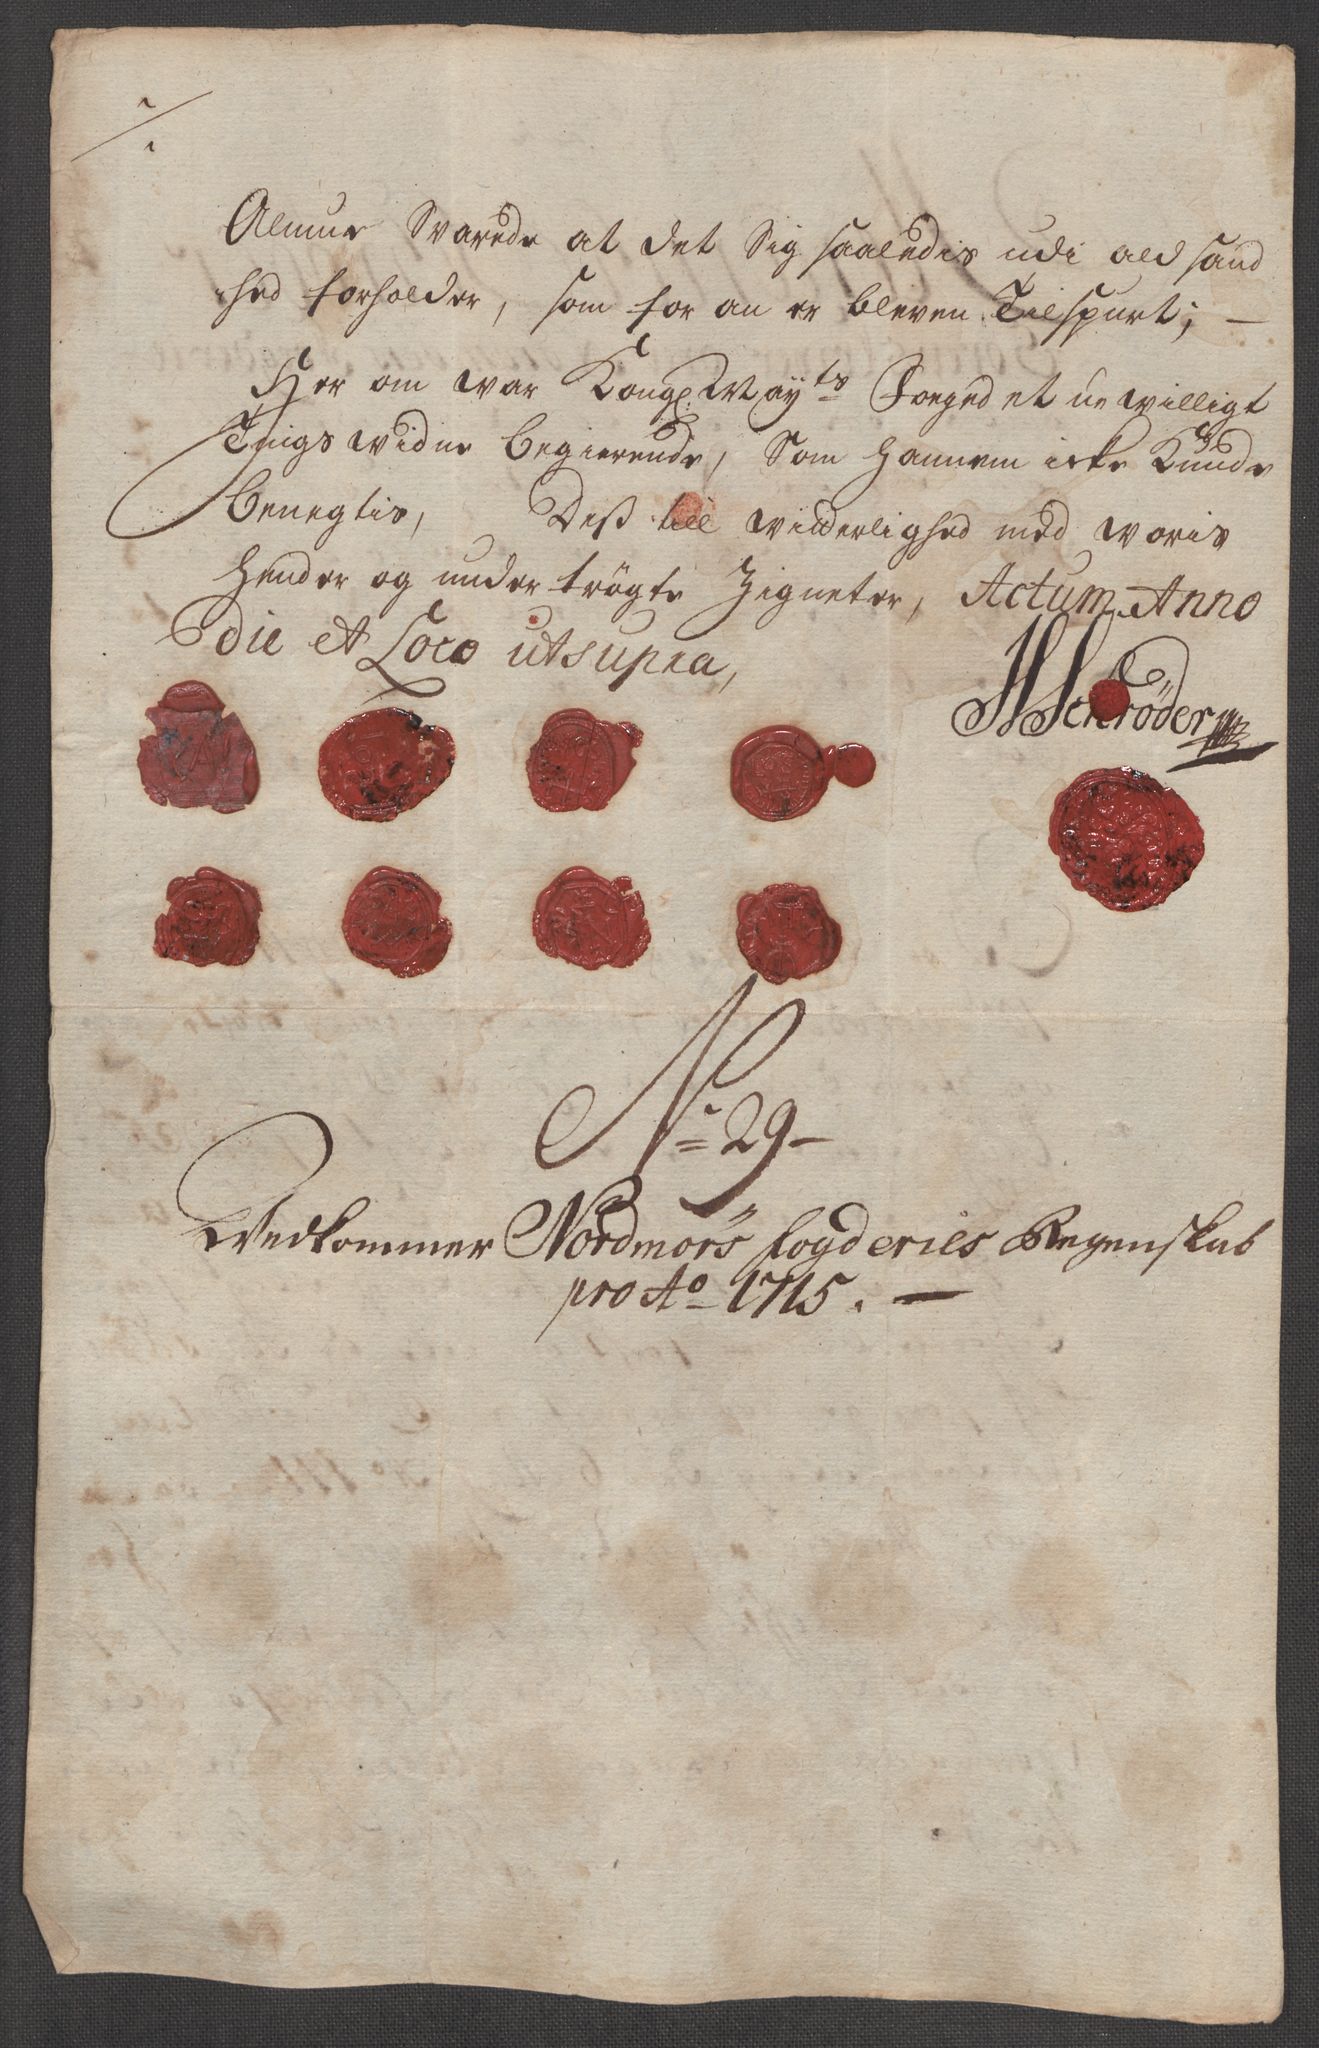 Almue Svarede at det Sig saaledis udi ald sand
hed forholder, som for an er bleven Tilspurt; —
Her om war Kongl. Mayts Foeged et uewilligt
Tings widne begierende, Som hannem icke Kunde
benegtis, Dess till witterlighed med woris
hender og under trögte Zigneter, Actum Anno
die et Loco ut supra,
HSchröder
No 29 —
Vedkommer Nordmörs fogderies Regenskab
pro Ao 1715. —